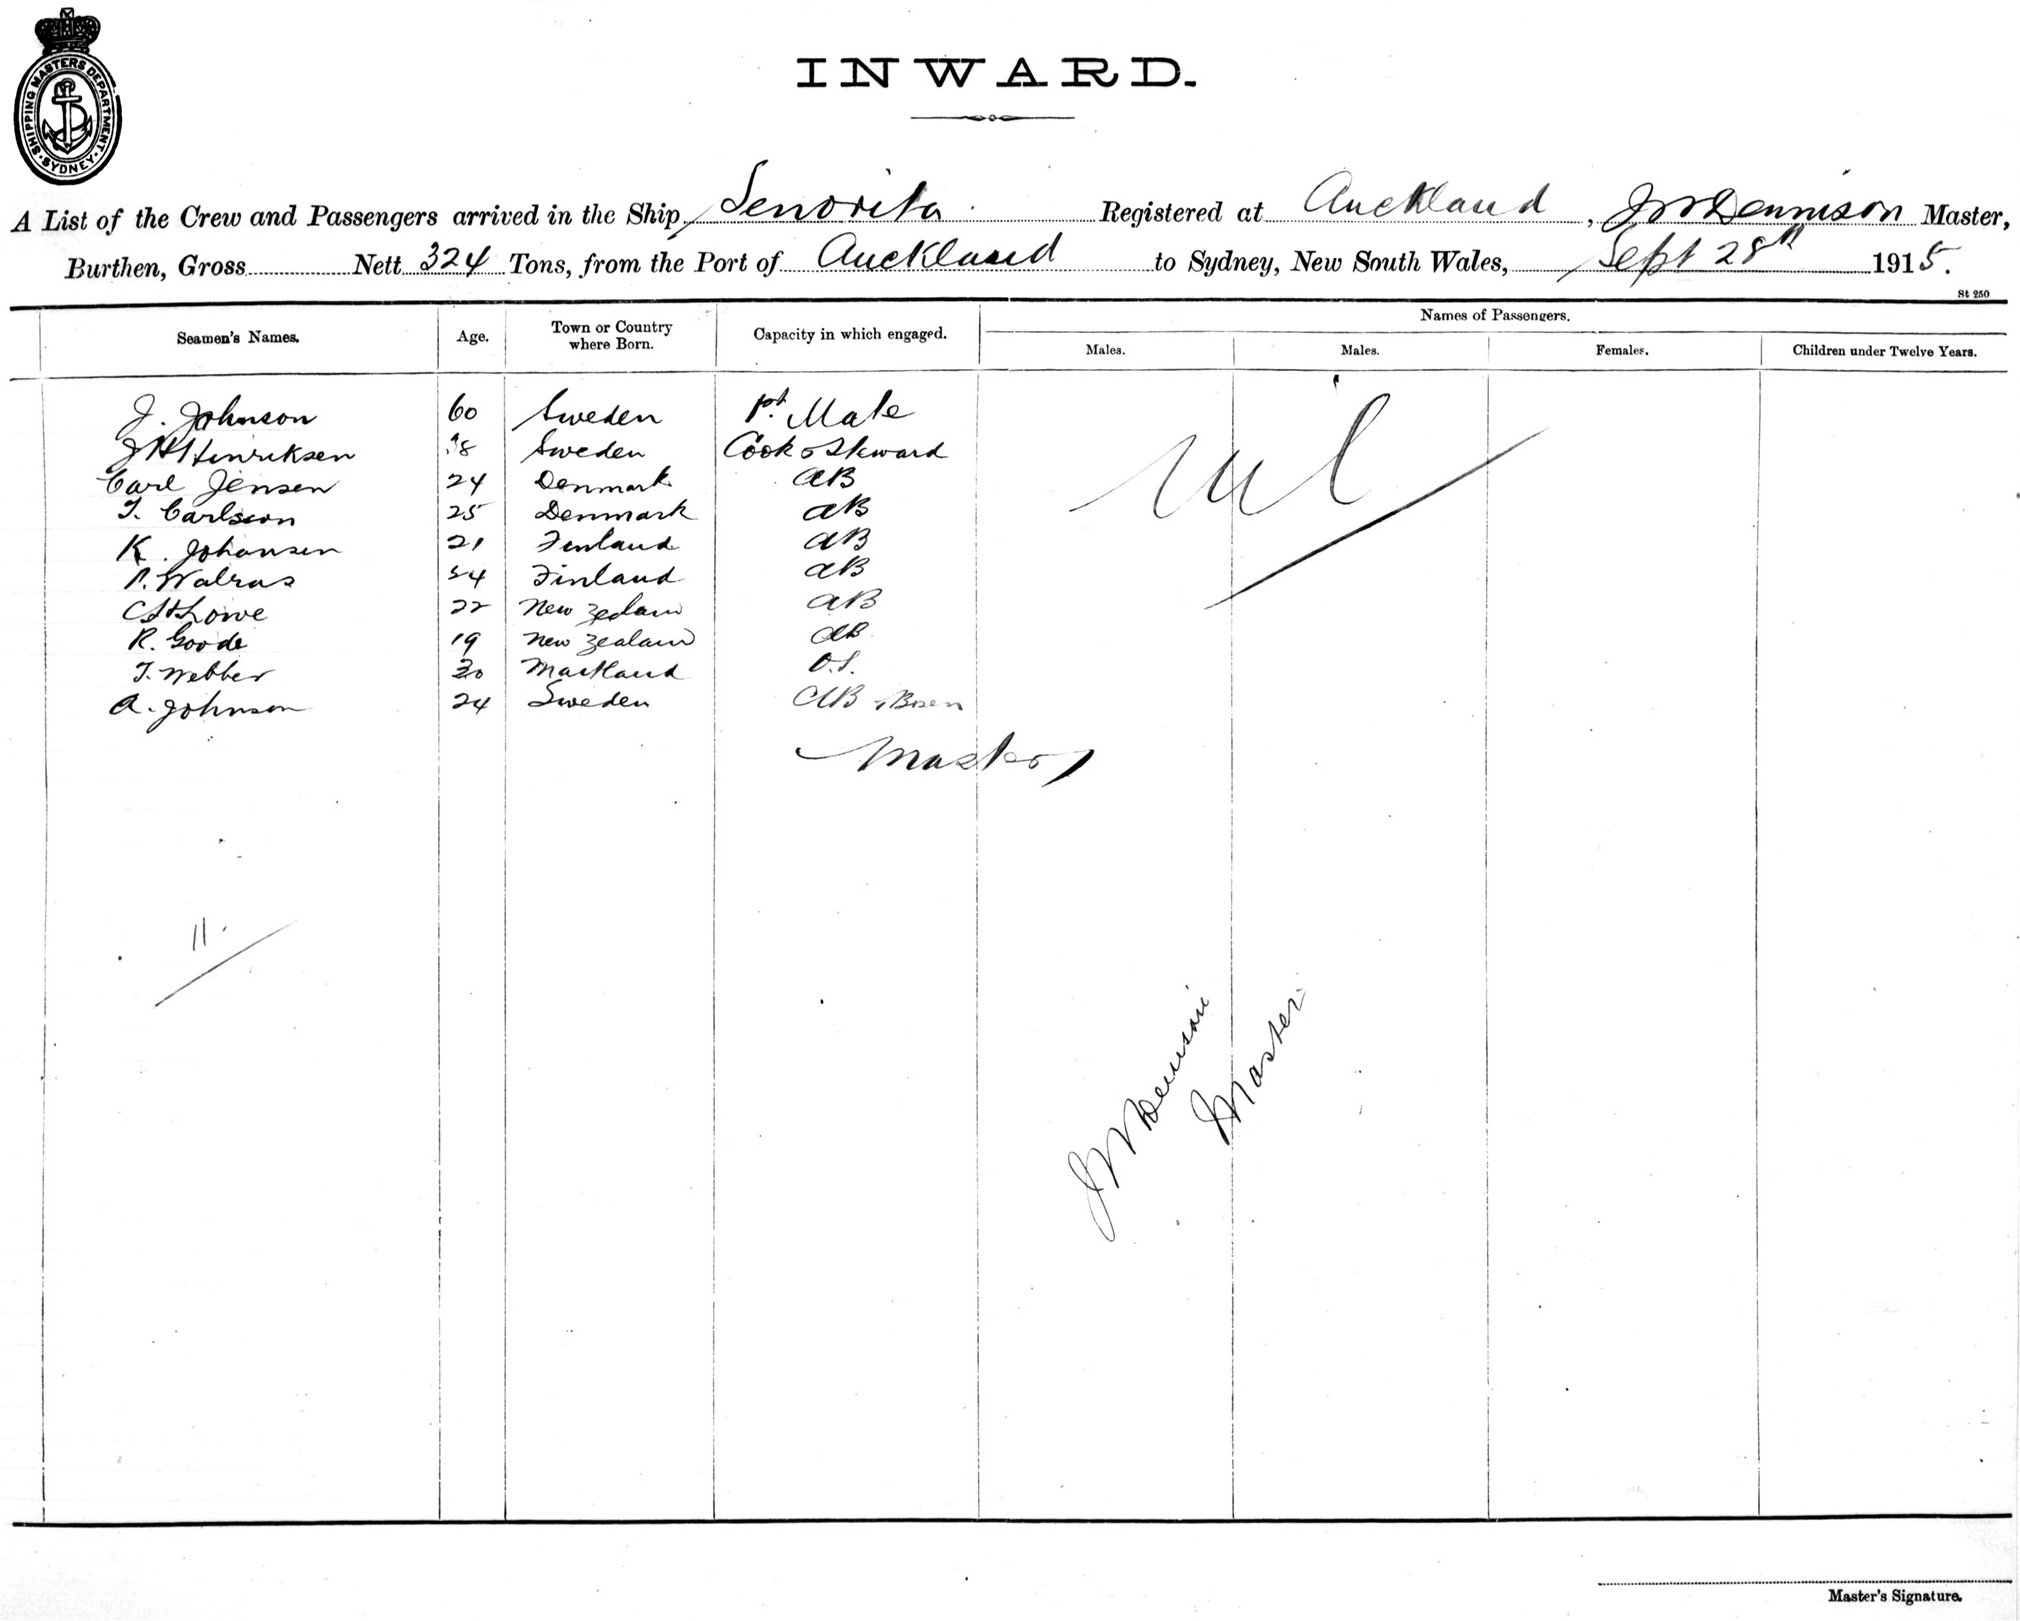 SHIPPING MASTERS DEPARTMENT. SYDNEY.
INWARD.
A List of the Crew and Passengers arrived in the Ship Senorita Registered at Auckland, JW Dennison Master,
Burthen, Gross Nett 324 Tons, from the Port of Auckland to Sydney, New South Wales, Sept 28th 1915.
St 250
Seamen's Names. Age. Town or Country where Born. Capacity in which engaged. Names of Passengers.
Males. Males. Females. Children under Twelve Years.
J. Johnson 60 Sweden 1st. Mate
J H Hinriksen Sweden Cook & Steward
Carl Jensen 24 Denmark AB
T. Carlsson 25 Denmark AB
nil
K. Johansen 21 Finland AB
Walras 24 Finland AB
Lowe 22 New Zealand AB
R. Goode 19 New Zealand AB
T. Webber 20 Maitland O.S.
A. Johnson 24 Sweden AB & Bosen
Master
11.
JW Dennison
Master
Master's Signature.